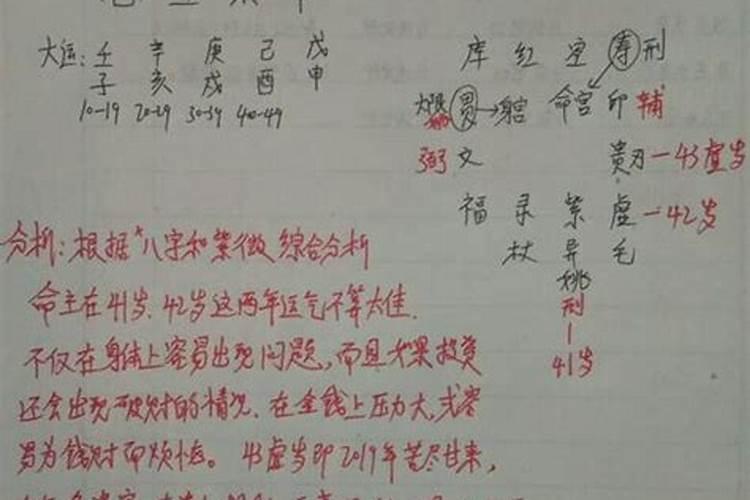 大运: 壬 辛 庚 己 戊
子 亥 戌 酉 申
10-19 20-29 30-39 40-49
库 红 空 寿 刑
大限 贯→身宫 命宫 印 辅
弼 文 贵刃-43虚岁
福 录 紫 虚-42岁
杖 异 毛
姚
刑
|
41岁
分析: 根据"八字和紫微综合分析
命主在41岁、42岁这两年运气不算太佳.
不仅在身体上容易出现问题,而且如果投资
还会出现破财的情况、在金钱上压力大,或容
易为钱财而烦恼。43虚岁即2019年苦尽甘来,